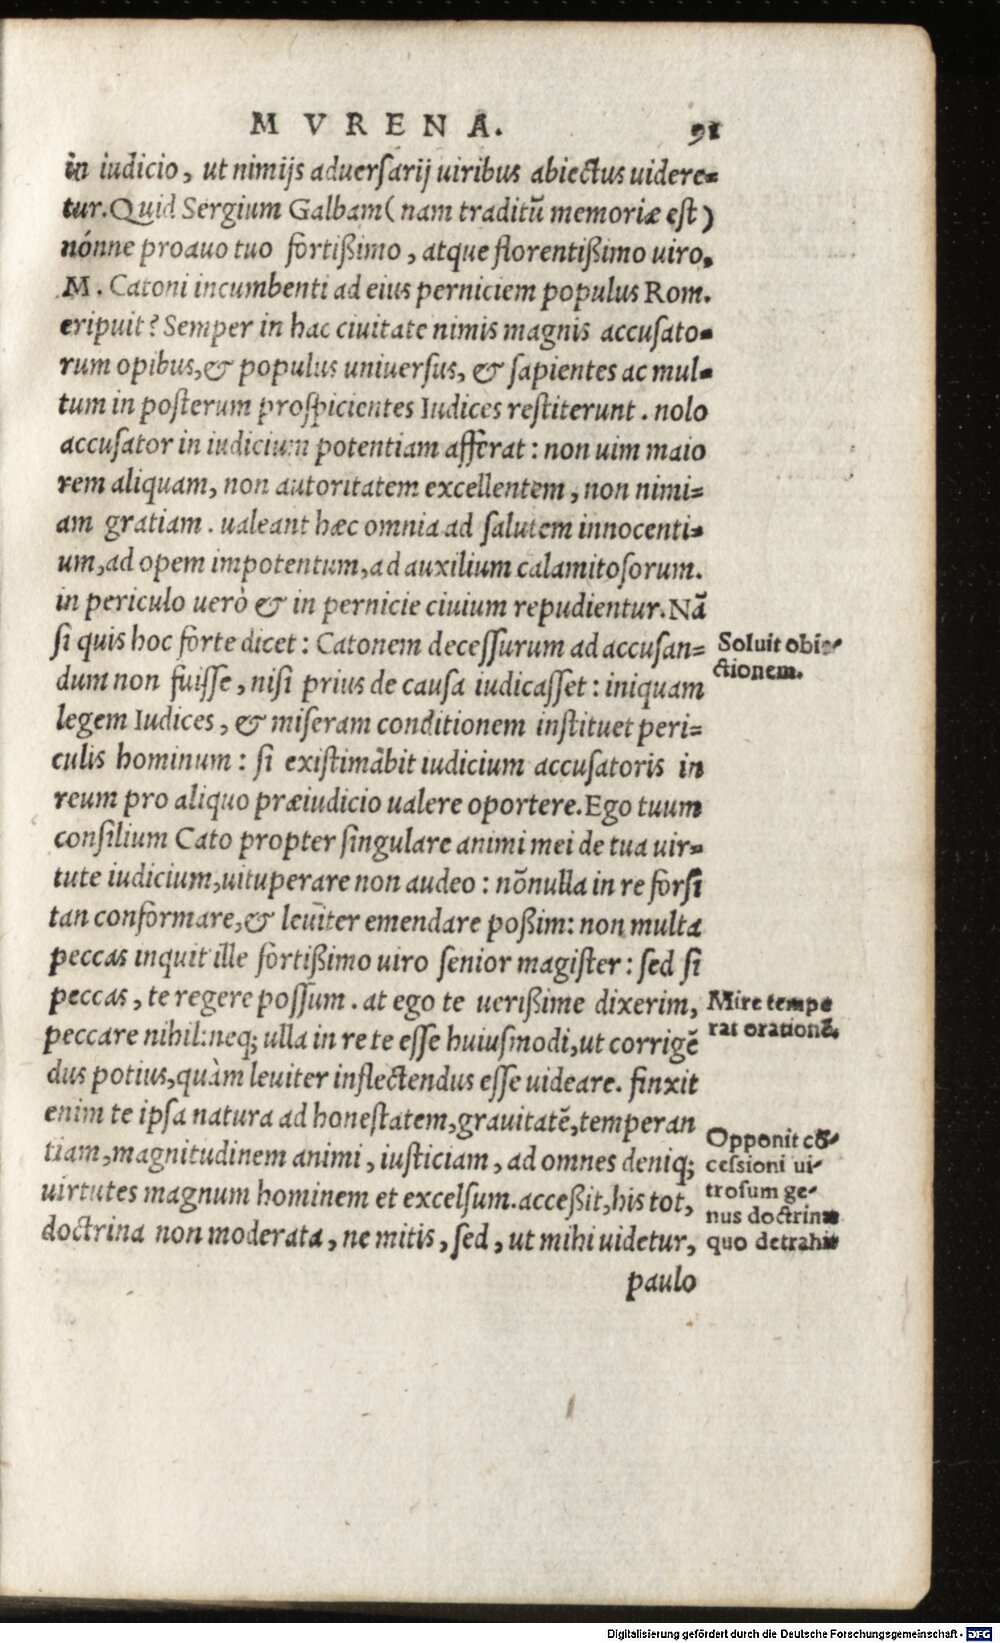 MVRENA. 91
in iudicio, ut nimijs aduersarij uiribus abiectus uidere=
tur. Quid Sergium Galbam (nam traditū memoriæ est)
nónne proauo tuo fortißimo, atque florentißimo uiro,
M. Catoni incumbenti ad eius perniciem populus Rom.
eripuit? Semper in hac ciuitate nimis magnis accusato=
rum opibus, & populus uniuersus, & sapientes ac mul=
tum in posterum prospicientes Iudices restiterunt. nolo
accusator in iudicium potentiam afferat: non uim maio
rem aliquam, non autoritatem excellentem, non nimi=
am gratiam. ualeant hæc omnia ad salutem innocenti=
um, ad opem impotentum, ad auxilium calamitosorum.
in periculo uerò & in pernicie ciuium repudientur. Nā
si quis hoc forte dicet: Catonem decessurum ad accusan=
dum non fuisse, nisi prius de causa iudicasset: iniquam
legem Iudices, & miseram conditionem instituet peri=
culis hominum: si existimabit iudicium accusatoris in
reum pro aliquo præiudicio ualere oportere. Ego tuum
consilium Cato propter singulare animi mei de tua uir=
tute iudicium, uituperare non audeo: nōnulla in re forsi
tan conformare, & leuiter emendare poßim: non multa
peccas inquit ille fortißimo uiro senior magister: sed si
peccas, te regere possum. at ego te uerißime dixerim,
peccare nihil: neq; ulla in re te esse huiusmodi, ut corrigē
dus potius, quàm leuiter inflectendus esse uideare. finxit
enim te ipsa natura ad honestatem, grauitatē, temperan
tiam, magnitudinem animi, iusticiam, ad omnes deniq;
uirtutes magnum hominem et excelsum. acceßit, his tot,
doctrina non moderata, ne mitis, sed, ut mihi uidetur,
paulo
Soluit obie-
ctionem.
Mire tempe
rat orationē.
Opponit cō-
cessioni ui-
trosum ge-
nus doctrinæ
quo detrahit
Digitalisierung gefördert durch die Deutsche Forschungsgemeinschaft - DFG